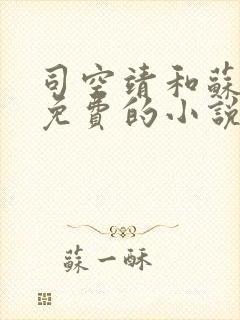 司空靖和蘇
免費的小說
蘇一酥